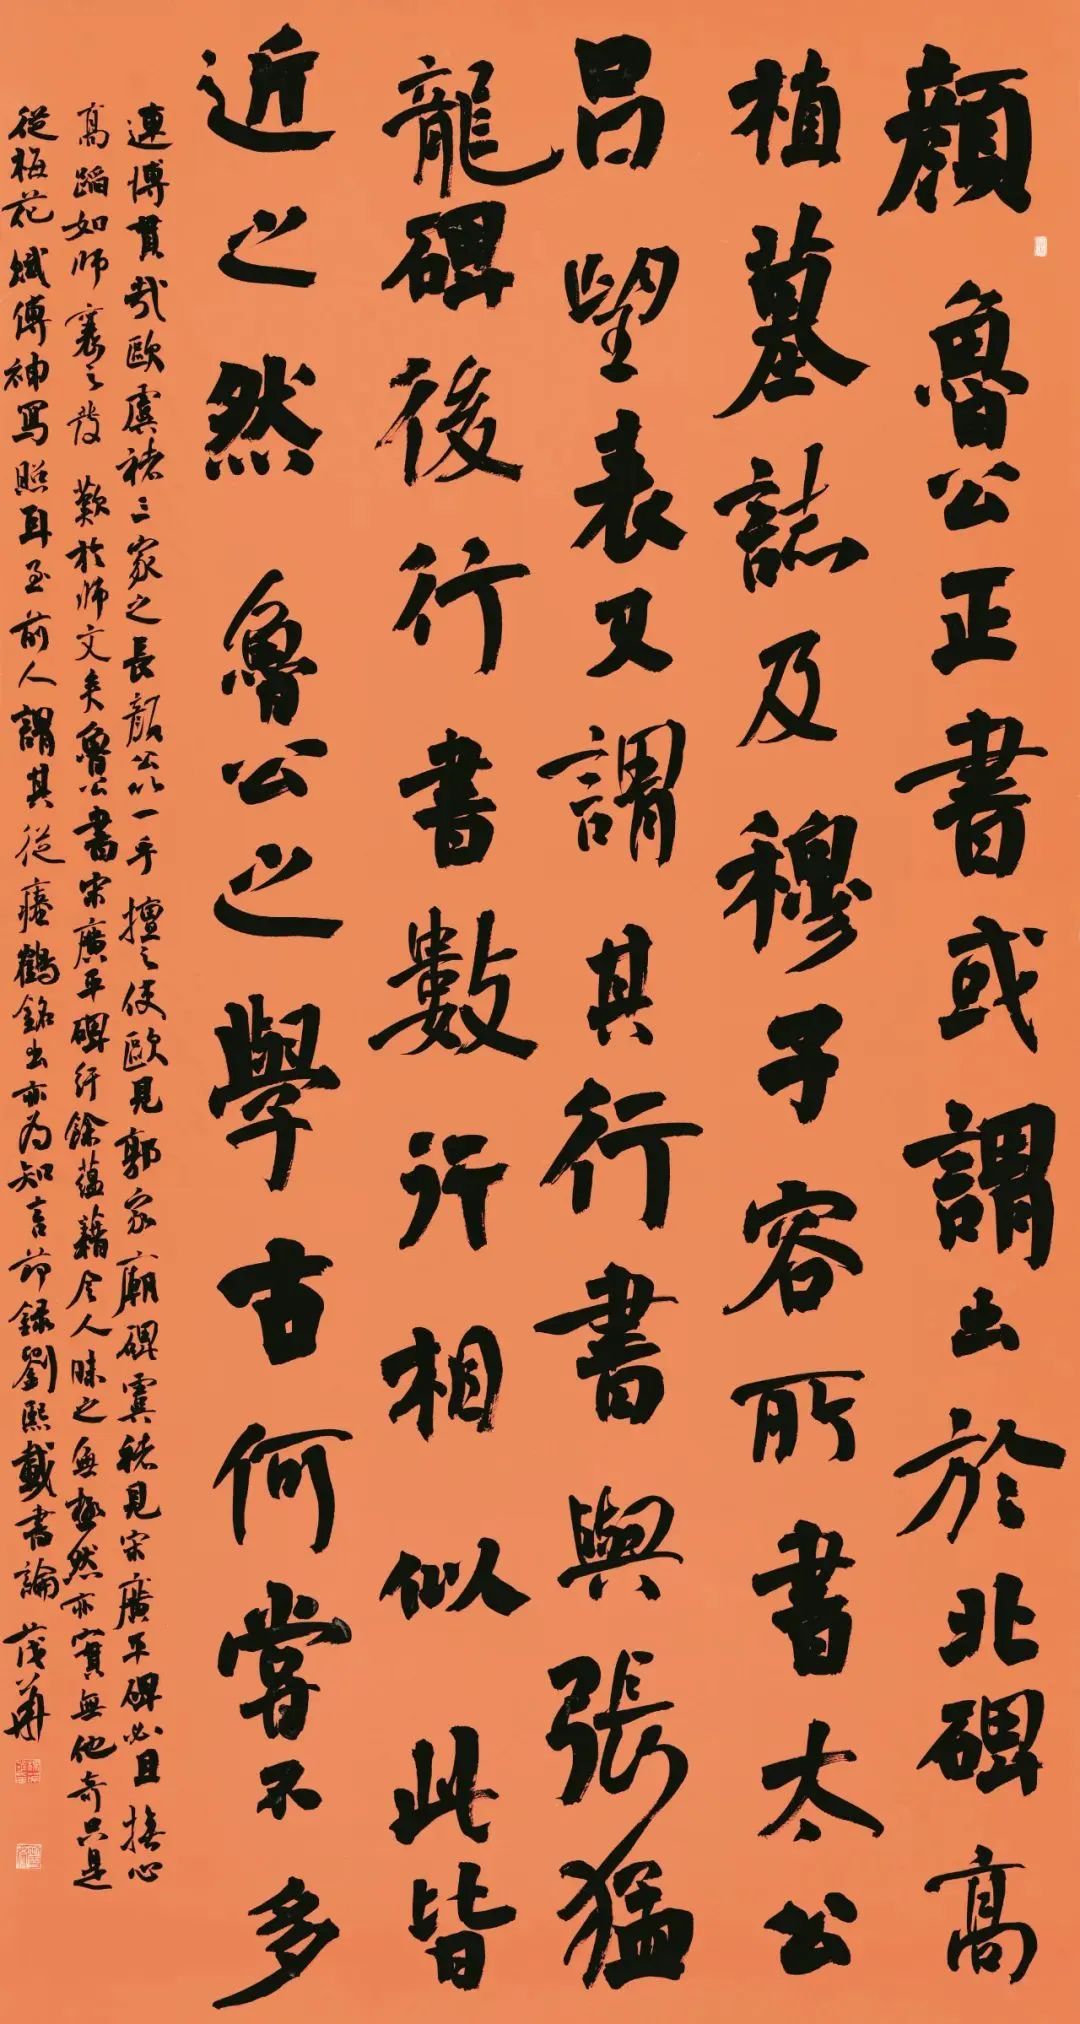 顏魯公正書或謂出於北碑高
植墓誌及穆子容所書太公
呂望表又謂其行書與張猛
龍碑後行書數行相似此皆
近之然魯公之學古何嘗不多
連博貫哉歐虞褚三家之長顏公以一手擅之使歐見郭家廟碑虞褚見宋廣平碑必且撫心
高蹈如師襄之發歎於師文矣魯公書宋廣平碑紆餘蘊藉令人味之無極然亦實無他奇只是
從梅花賦傳神寫照耳至前人謂其從瘞鶴銘出亦為知言節錄劉熙載書論